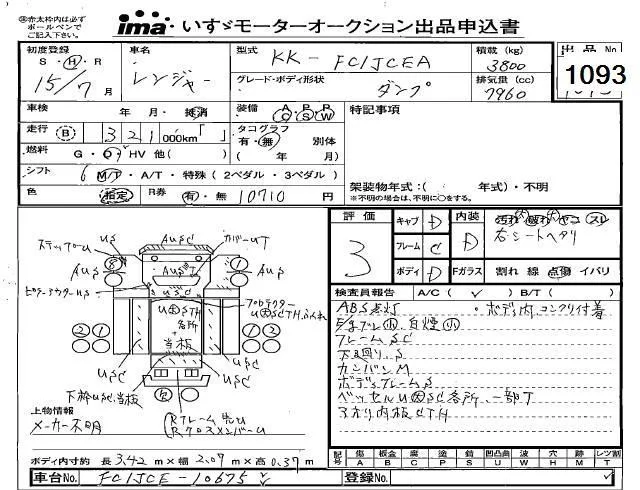 ㊟赤太枠内は必ず
ボールペンで
ご記入下さい。
ima いすゞモーターオークション出品申込書
初度登録 車名 型式 KK-FC1JCEA 積載(kg) 3800 出品No
S・H・R 15/7月 レンジャー グレード・ボディ形状 ダンプ 排気量(cc) 7960 1093
車検 年 月・抹消 装備 A P R C S W 特記事項
走行 B 321 000km「 」 タコグラフ 有・無 別体
燃料 G・D・HV 他( ) ( 年 月)
シフト 6 M/T・A/T・特殊(2ペダル・3ペダル)
色 指定 R券 有・無 10710円
架装物年式:( 年式)・不明
※不明の場合は、不明に○をする。
評価 3 キャブ D 内装 D
フレーム C 右シートヘタリ
ボディ D Fガラス 割れ 線 点傷 イバリ
検査員報告 A/C( ✓ ) B/T( )
ABS点灯 ・ボデー内コンクリ付着
白煙小
フレームSC
下回り.S
カンバンM
ボデーフレームS
ベッセルU大SC各所.一部T
3方内板CTH
ステップU US AUSC カバーUT
AUS AUS AUS
USC
U大STH 各所 + 当板
USC USC
USC
下枠USC.当板
上物情報
メーカー不明
Rフレーム先U
RクロスメンバーU
ボディ内寸約 長3.42m×幅2.07m×高0.37m
記号 傷 A 板金 B 腐 C 塗 P 錆 S 凹凸曲 U 波 W 穴 H 木床 M レツ割 T
車台No. FC1JCE-10675 登録No.